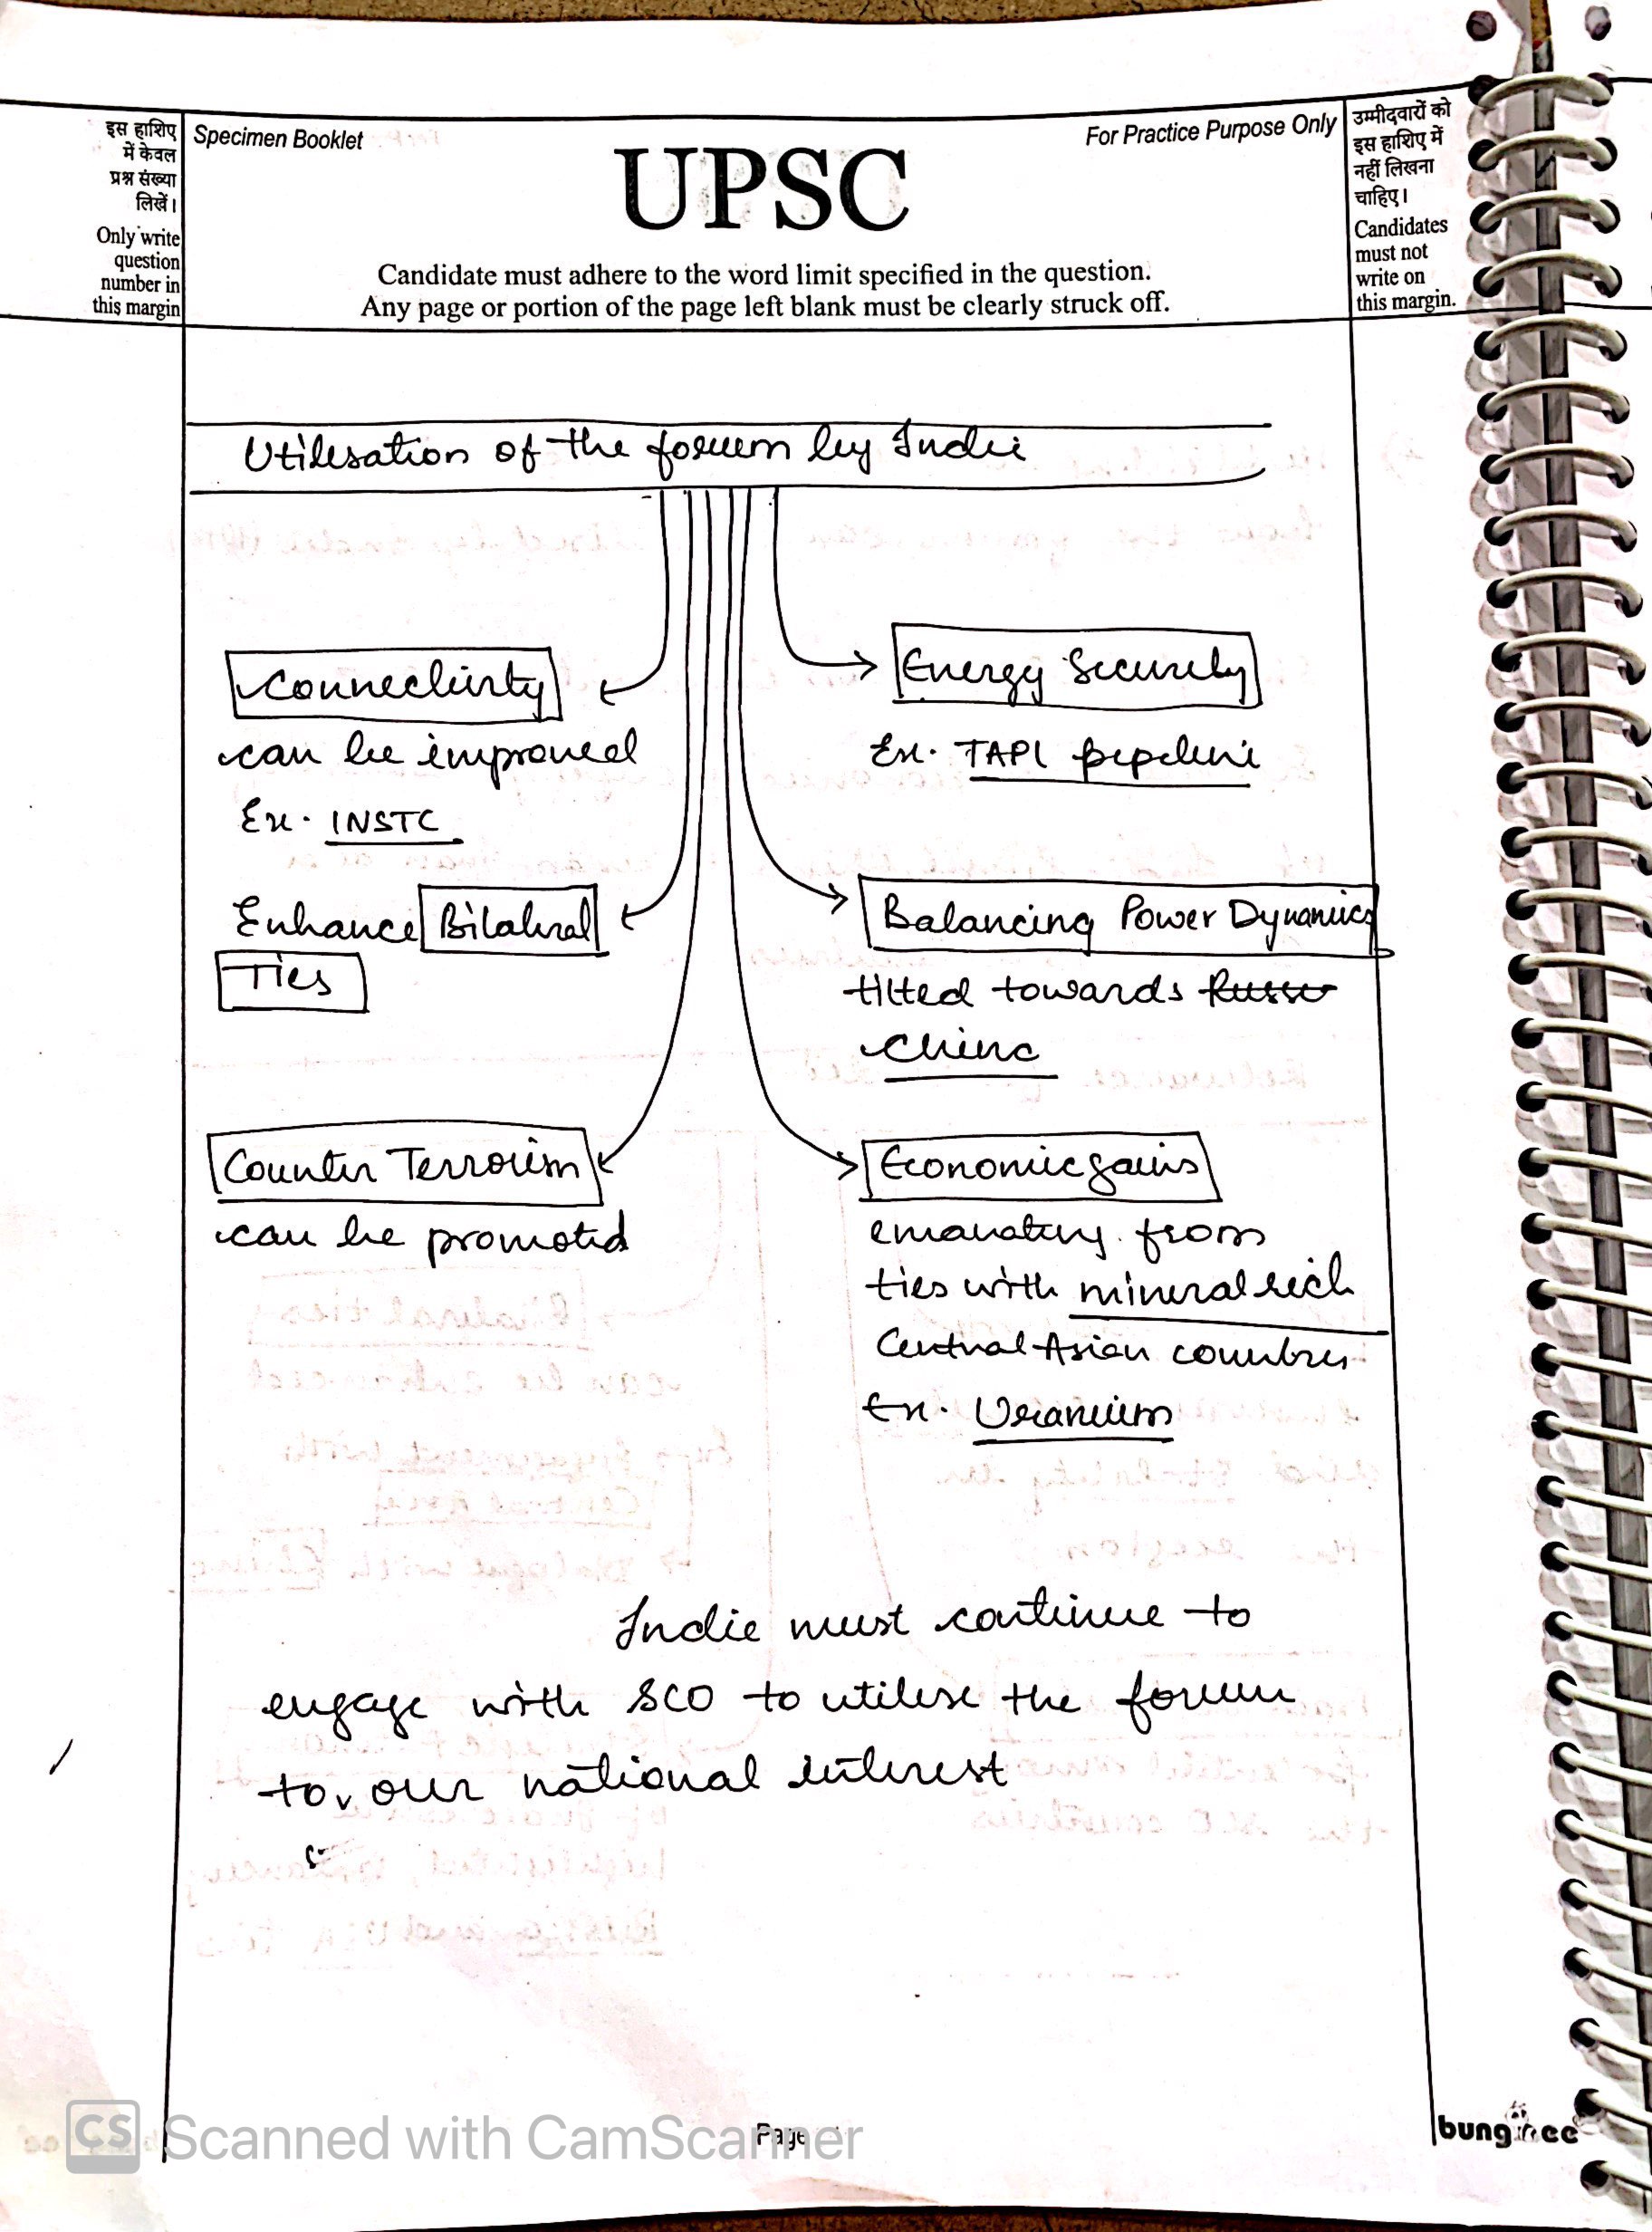 इस हाशिए
में केवल
प्रश्न संख्या
लिखें।
Only write
question
number in
this margin
Specimen Booklet
For Practice Purpose Only
UPSC
Candidate must adhere to the word limit specified in the question.
Any page or portion of the page left blank must be clearly struck off.
उम्मीदवारों को
इस हाशिए में
नहीं लिखना
चाहिए।
Candidates
must not
write on
this margin.
Utilisation of the forum by India
Connectivity
can be improved
Ex. INSTC
Enhance Bilateral
Ties
Counter Terrorism
can be promoted
Energy Security
Ex. TAPI pipeline
Balancing Power Dynamics
tilted towards
China
Economic gains
emanating from
ties with mineral rich
Central Asian countries
Ex. Uranium
India must continue to
engage with SCO to utilise the forum
to our national interest
CS Scanned with CamScanner
Page